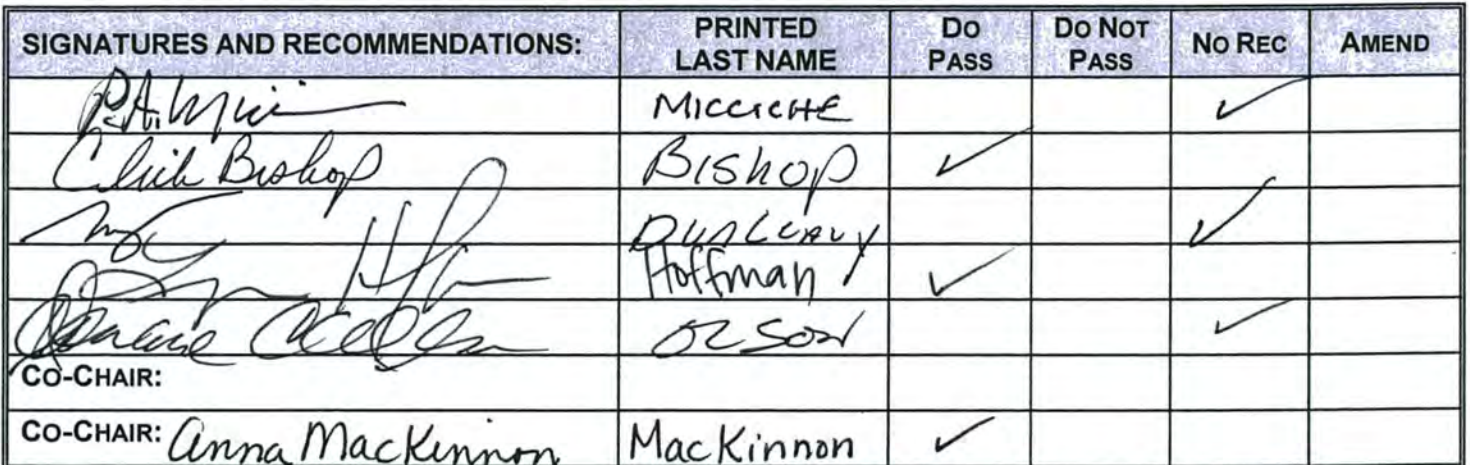 SIGNATURES AND RECOMMENDATIONS: PRINTED LAST NAME DO PASS DO NOT PASS NO REC AMEND
MICCICHE ✓
Click Bishop BISHOP ✓
DUNLEAVY ✓
Hoffman ✓
OLSON ✓
CO-CHAIR:
CO-CHAIR: Anna MacKinnon MacKinnon ✓